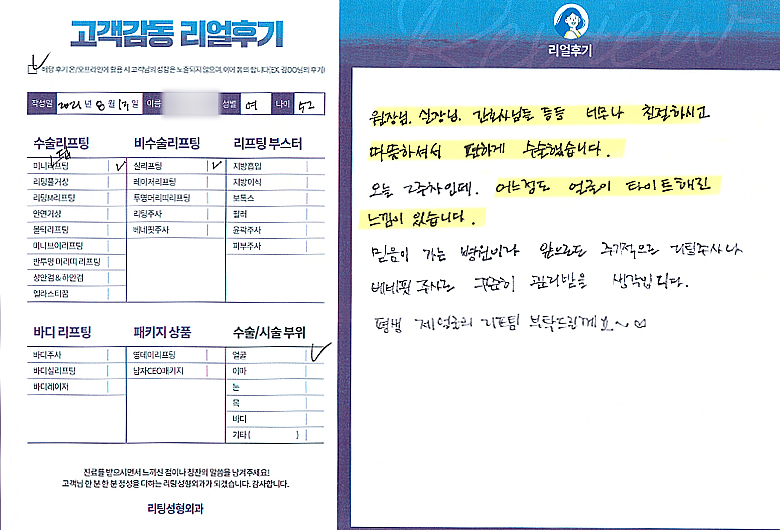 고객감동 리얼후기
해당 후기 온/오프라인에 활용 시 고객님의 성함은 노출되지 않으며, 이에 동의 합니다(EX. 김OO님의 후기)
작성일 2021 년 8 월 17 일 이름 성별 여 나이 52
수술리프팅
미니리프팅
리팅풀거상
리팅M리프팅
안면거상
울틱리프팅
미니브이리프팅
반투명 미리띠 리프팅
상안검 & 하안검
엘라스티꿈
비수술리프팅
실리프팅
레이저리프팅
투명머리띠리프팅
리팅주사
베네핏주사
리프팅 부스터
지방흡입
지방이식
보톡스
필러
윤곽주사
피부주사
바디 리프팅
바디주사
바디실리프팅
바디레이저
패키지 상품
영데이리프팅
남자CEO패키지
수술/시술 부위
얼굴
이마
눈
목
바디
기타 ( )
진료를 받으시면서 느끼신 점이나 칭찬의 말씀을 남겨주세요!
고객님 한 분 한 분 정성을 다하는 리팅성형외과가 되겠습니다. 감사합니다.
리팅성형외과
Review
리얼후기
원장님, 실장님, 간호사님들 등등 너무나 친절하시고
따뜻하셔서 편하게 수술했습니다.
오늘 2주차인데. 어느정도 얼굴이 타이트해진
느낌이 있습니다.
믿음이 가는 병원이라 앞으로도 주기적으로 리팅주사나
베네핏 주사로 꾸준히 관리받을 생각입니다.
평생 제얼굴의 리프팅 부탁드릴께요~♡